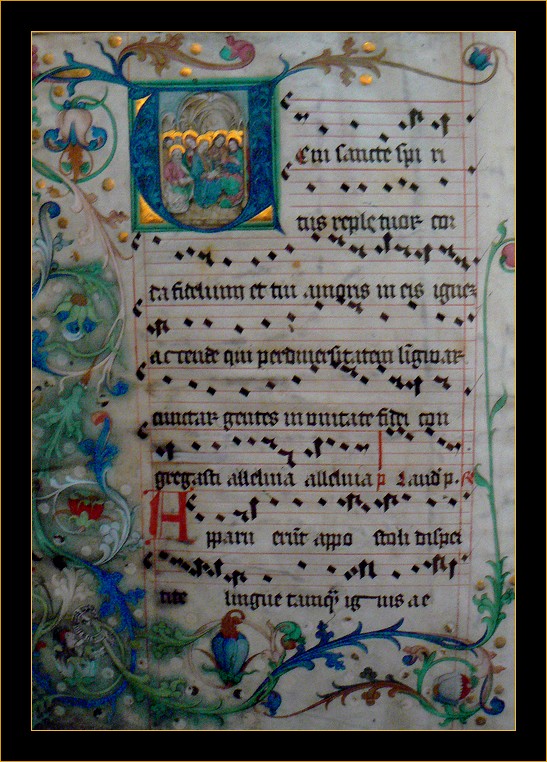 Veni sancte spi ri
tus reple tuor cor
da fidelium et tui amoris in eis ignez
accende qui per diuersitatem linguar
cunctar gentes in vnitate fidei con
gregasti alleluia alleluia p Laud p.
Apparu erut appo stoli disperti
te lingue tamq ig nis ae